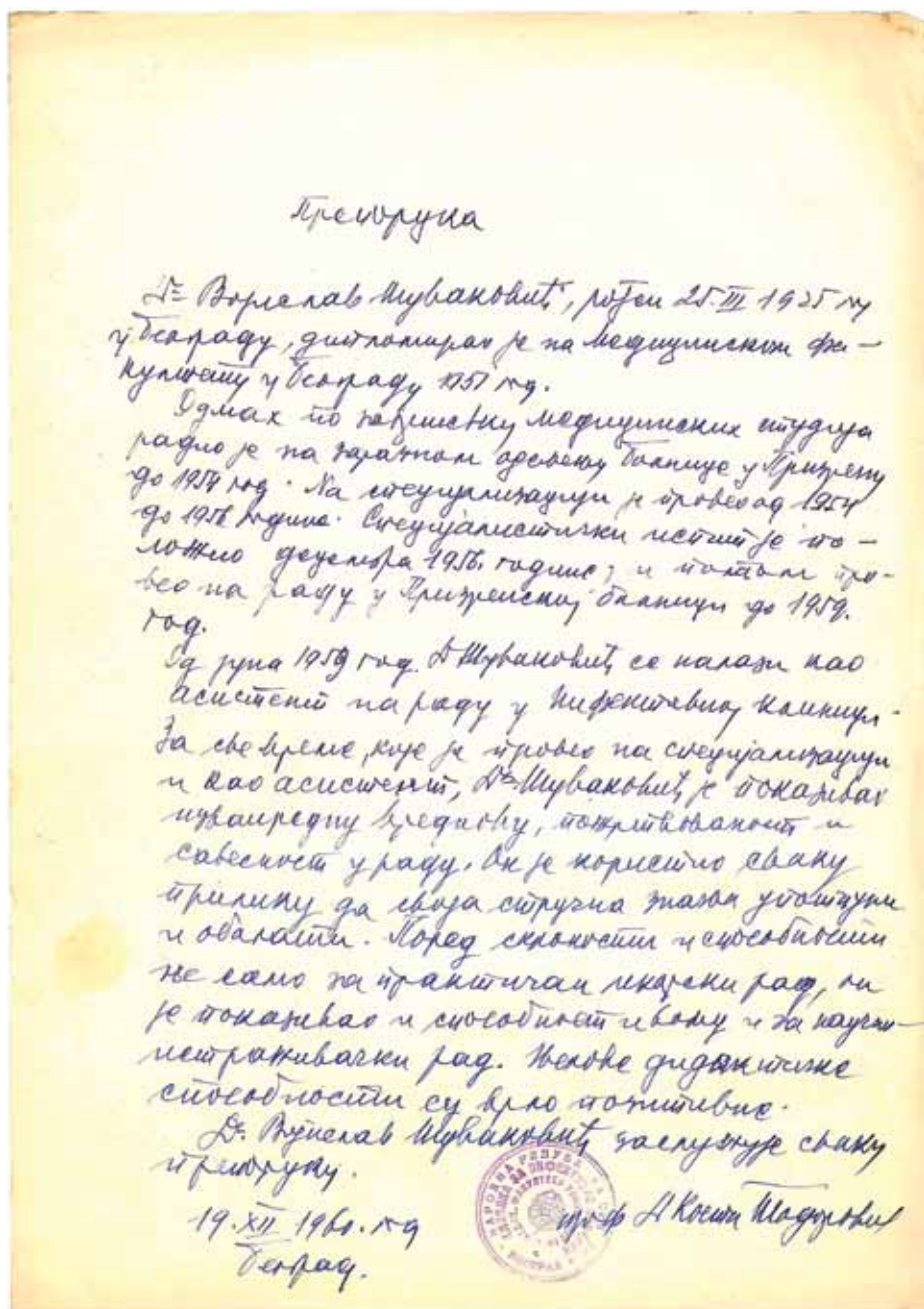 Препорука
Др Војислав Шуваковић, рођен 25 III 1925 год
у Београду, дипломирао је на Медицинском фа-
култету у Београду 1951 год.
Одмах по завршетку медицинских студија
радио је на заразном одељењу болнице у Призрену
до 1954 год. На специјализацији је провео од 1954
до 1956 године. Специјалистички испит је по-
ложио децембра 1956. године, и потом про-
вео на раду у Призренској болници до 1959.
год.
Од јуна 1959 год. Др Шуваковић се налази као
асистент на раду у Инфективној клиници.
За све време, које је провео на специјализацији
и као асистент, Др Шуваковић је показивао
изванредну вредноћу, пожртвованост и
савесност у раду. Он је користио сваку
прилику да своја стручна знања употпуни
и обогати. Поред склоности и способности
не само за практичан лекарски рад, он
је показивао и способност и вољу и за научно
истраживачки рад. Његове дидактичке
способности су врло позитивне.
Др. Војислав Шуваковић заслужује сваку
препоруку.
19. XII 1960. год
Београд.
проф Др Коста Тодоровић
НАРОДНА
БЕОГРАД